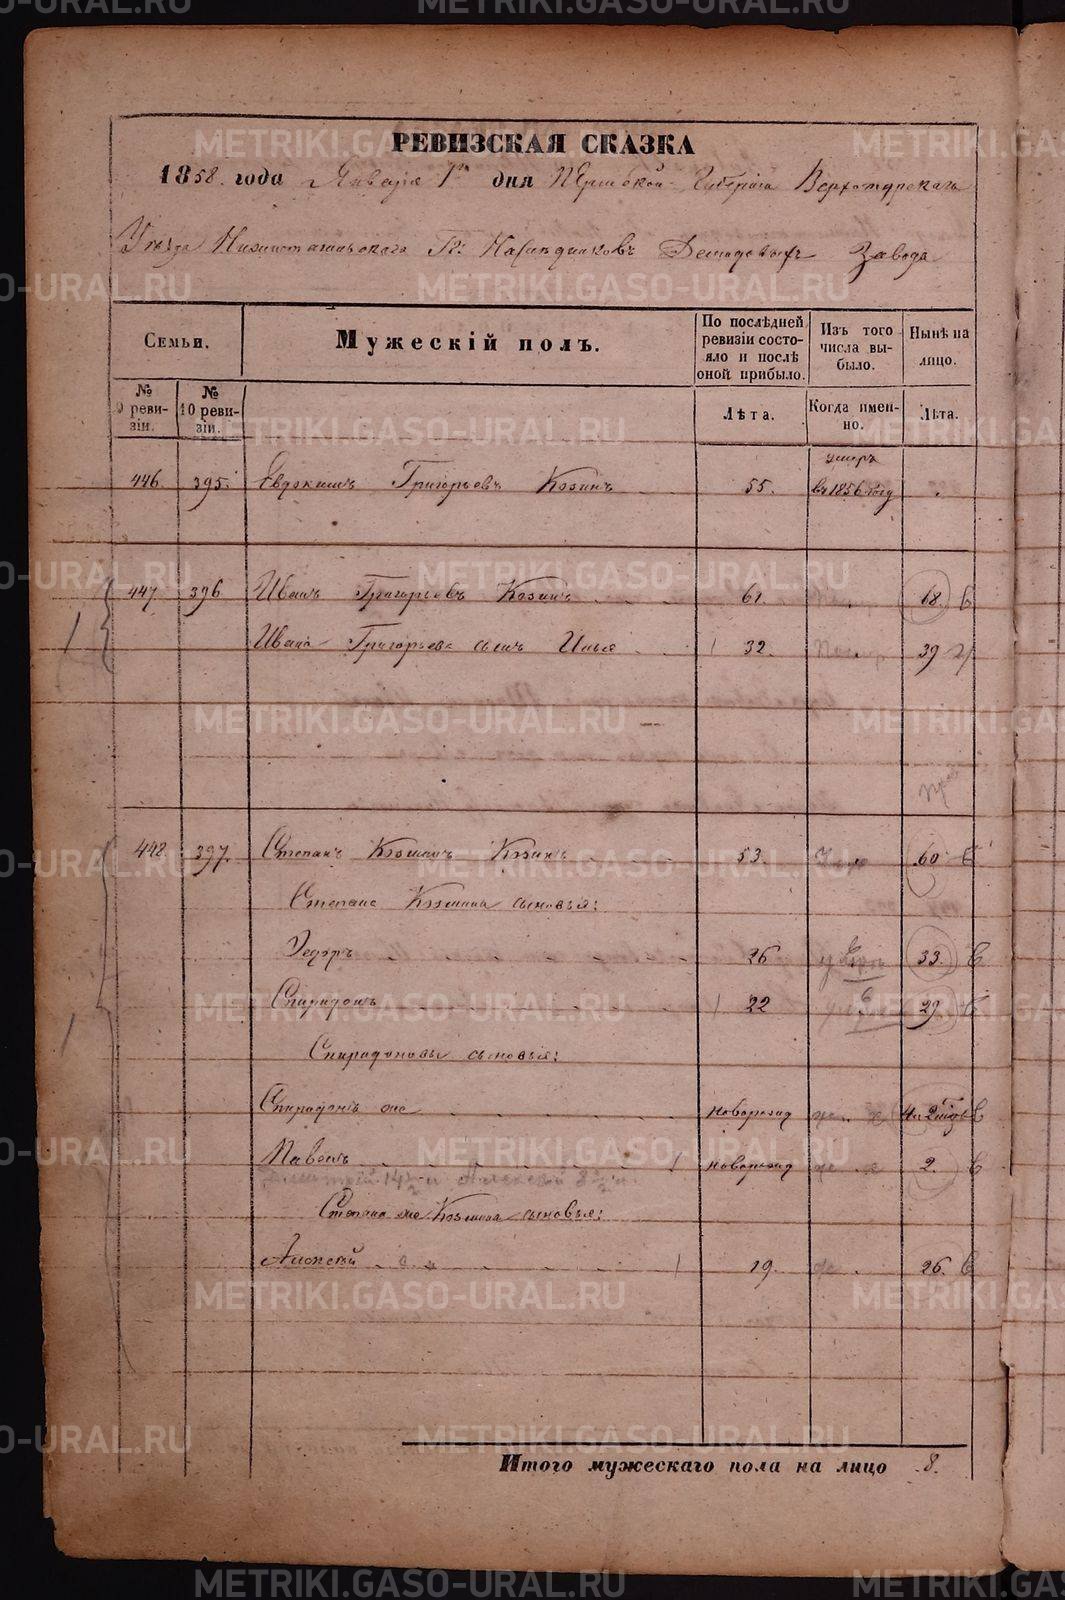 РЕВИЗСКАЯ СКАЗКА
1858. года Января 1го дня Пермской Губернiи Верхотурскаго
Уѣзда Нижнетагильскаго Гг: Наслѣдниковъ Демидовыхъ Завода
Семьи.
Мужескiй полъ.
По послѣдней ревизiи состояло и послѣ оной прибыло.
Изъ того числа выбыло.
Нынѣ на лицо.
№ 9 ревизiи.
№ 10 ревизiи.
Лѣта.
Когда именно.
Лѣта.
446 395. Евдокимъ Григорьевъ Козинъ 55. умеръ въ 1856 году
447 396 Иванъ Григорьевъ Козинъ 61. 68.
Ивана Григорьева сынъ Илья 32. 39
448 397. Степанъ Козминъ Козинъ 53. 60
Степана Козмина сыновья:
Федоръ 26 33.
Спиридонъ 22 29.
Спиридоновы сыновья:
Спиридонъ же новорожд
Павелъ новорожд 2.
Степана же Козмина сыновья:
Алексѣй 19. 26.
Итого мужескаго пола на лицо 8.
METRIKI.GASO-URAL.RU